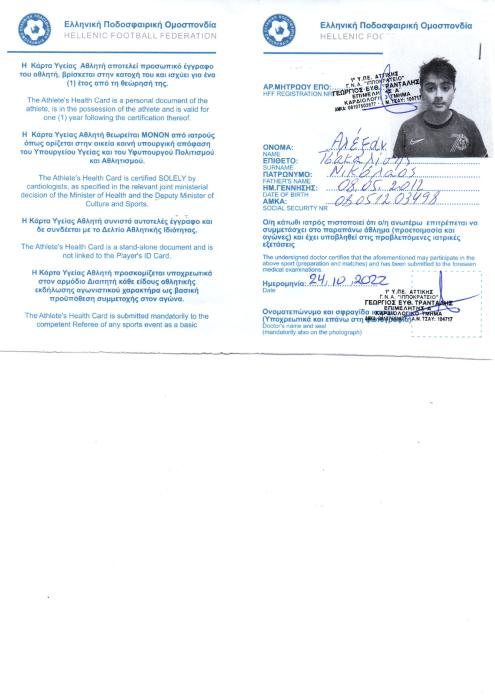 Ελληνική Ποδοσφαιρική Ομοσπονδία
HELLENIC FOOTBALL FEDERATION
Η Κάρτα Υγείας Αθλητή αποτελεί προσωπικό έγγραφο
του αθλητή, βρίσκεται στην κατοχή του και ισχύει για ένα
(1) έτος από τη θεώρησή της.
The Athlete's Health Card is a personal document of the
athlete, is in the possession of the athlete and is valid for
one (1) year following the certification thereof.
Η Κάρτα Υγείας Αθλητή θεωρείται ΜΟΝΟΝ από ιατρούς
όπως ορίζεται στην οικεία κοινή υπουργική απόφαση
του Υπουργείου Υγείας και του Υφυπουργού Πολιτισμού
και Αθλητισμού.
The Athlete's Health Card is certified SOLELY by
cardiologists, as specified in the relevant joint ministerial
decision of the Minister of Health and the Deputy Minister of
Culture and Sports.
Η Κάρτα Υγείας Αθλητή συνιστά αυτοτελές έγγραφο και
δε συνδέεται με το Δελτίο Αθλητικής Ιδιότητας.
The Athlete's Health Card is a stand-alone document and is
not linked to the Player's ID Card.
Η Κάρτα Υγείας Αθλητή προσκομίζεται υποχρεωτικά
στον αρμόδιο Διαιτητή κάθε είδους αθλητικής
εκδήλωσης αγωνιστικού χαρακτήρα ως βασική
προϋπόθεση συμμετοχής στον αγώνα.
The Athlete's Health Card is submitted mandatorily to the
competent Referee of any sports event as a basic
Ελληνική Ποδοσφαιρική Ομοσπονδία
HELLENIC FOO
1η Υ.ΠΕ. ΑΤΤΙΚΗΣ
Γ.Ν.Α. "ΙΠΠΟΚΡΑΤΕΙΟ"
ΓΕΩΡΓΙΟΣ ΕΥΘ. ΤΡΑΝΤΑΛΗΣ
ΕΠΙΜΕΛΗΤΗΣ Α
ΚΑΡΔΙΟΛΟΓΙΚΟ ΤΜΗΜΑ
Μ. ΤΣΑΥ: 104717
ΑΡ.ΜΗΤΡΩΟΥ ΕΠΟ:
HFF REGISTRATION NR
ΟΝΟΜΑ: Αλέξαν
NAME
ΕΠΙΘΕΤΟ:
SURNAME
ΠΑΤΡΩΝΥΜΟ: Νικόλαος
FATHER'S NAME
ΗΜ.ΓΕΝΝΗΣΗΣ: 08.05.2012
DATE OF BIRTH
ΑΜΚΑ: 08051203498
SOCIAL SECURITY NR
Ο/η κάτωθι ιατρός πιστοποιεί ότι ο/η ανωτέρω επιτρέπεται να
συμμετάσχει στο παραπάνω άθλημα (προετοιμασία και
αγώνες) και έχει υποβληθεί στις προβλεπόμενες ιατρικές
εξετάσεις
The undersigned doctor certifies that the aforementioned may participate in the
above sport (preparation and matches) and has been submitted to the foreseen
medical examinations.
Ημερομηνία: 24.10.2022
Date
1η Υ.ΠΕ. ΑΤΤΙΚΗΣ
Γ.Ν.Α. "ΙΠΠΟΚΡΑΤΕΙΟ"
ΓΕΩΡΓΙΟΣ ΕΥΘ. ΤΡΑΝΤΑΛΗΣ
ΕΠΙΜΕΛΗΤΗΣ Α
ΚΑΡΔΙΟΛΟΓΙΚΟ ΤΜΗΜΑ
Α.Μ. ΤΣΑΥ: 104717
Ονοματεπώνυμο και σφραγίδα
(Υποχρεωτικά και επάνω στη φωτογραφία)
Doctor's name and seal
(mandatorily also on the photograph)